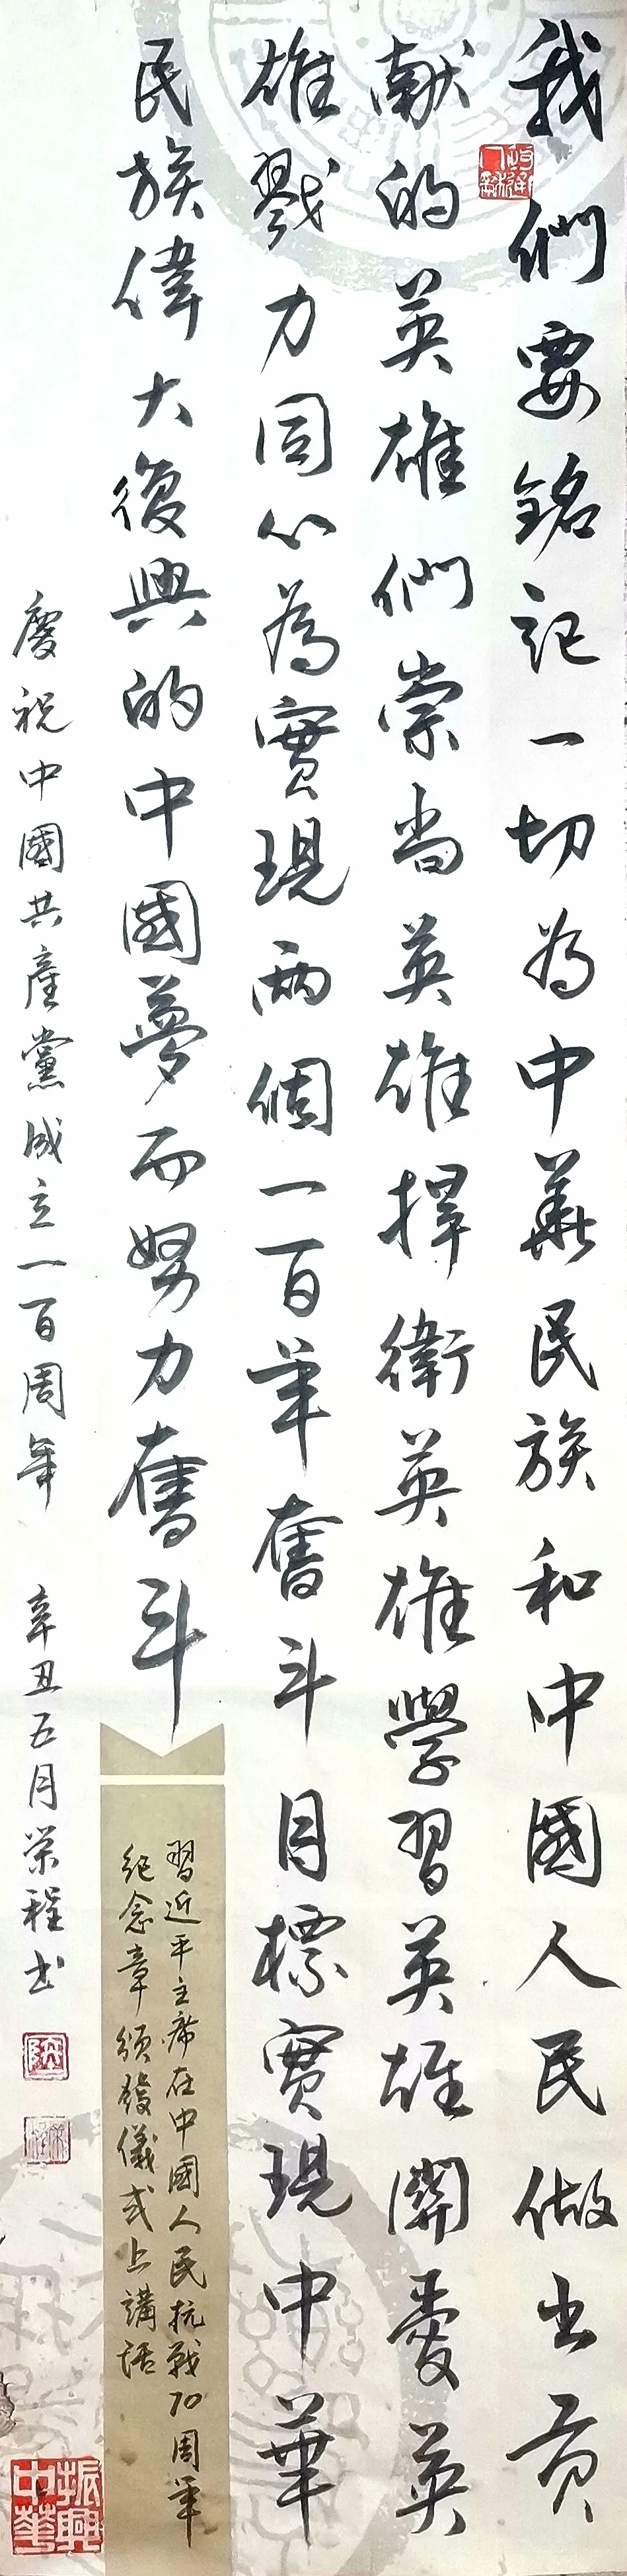 我們要銘記一切為中華民族和中國人民做出貢
獻的英雄們崇尚英雄捍衛英雄學習英雄關愛英
雄戮力同心為實現兩個一百年奮斗目標實現中華
民族偉大復興的中國夢而努力奮斗
習近平主席在中國人民抗戰70周年
紀念章頒發儀式上講話
慶祝中國共產黨成立一百周年 辛丑五月榮程书
振興中華